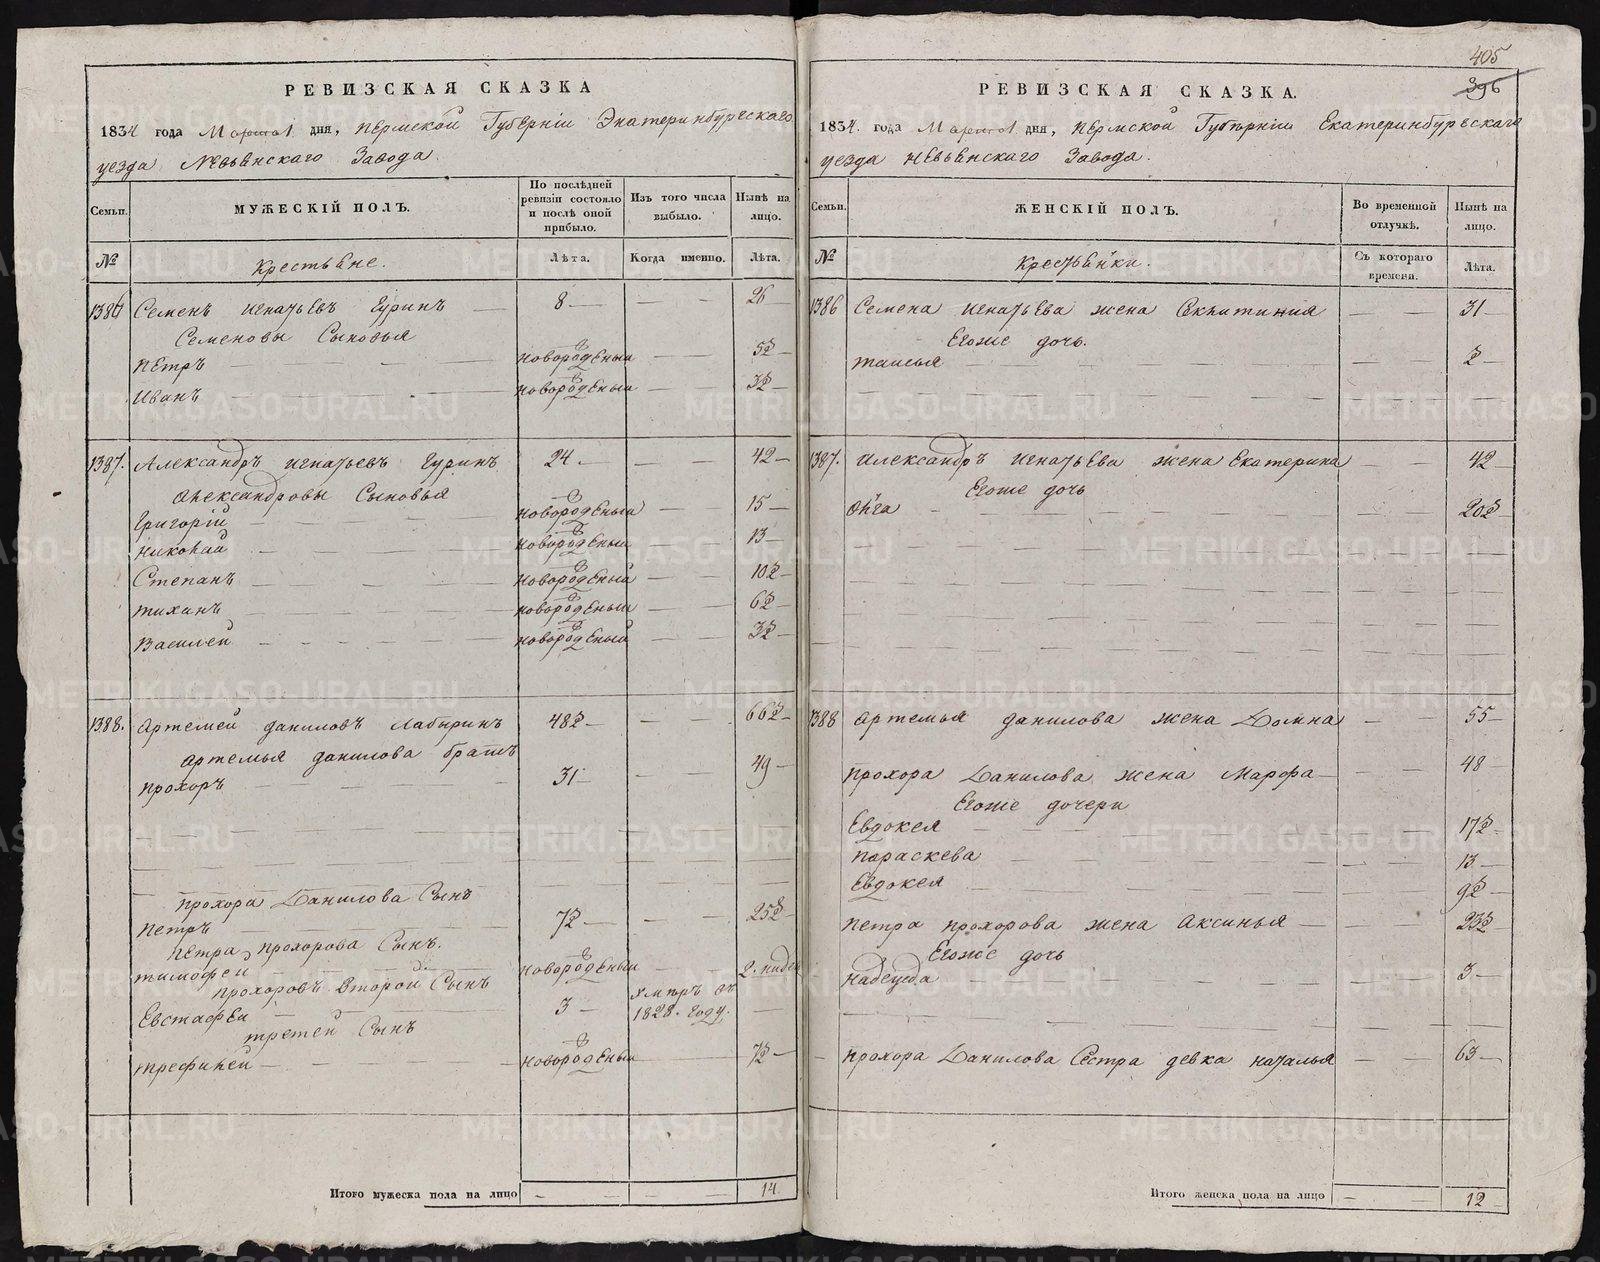 РЕВИЗСКАЯ СКАЗКА
1834 года Марта 1 дня, Пермской Губерніи Экатеринбургскаго
уезда Невьянскаго Завода.
Семьи.
МУЖЕСКІЙ ПОЛЪ.
По послѣдней ревизіи состояло и послѣ оной прибыло.
Изъ того числа выбыло.
Нынѣ на лицо.
№
Крестьяне.
Лѣта.
Когда именно.
Лѣта.
1386 Семенъ Игнатьевъ Гуринъ 8 — — — 26
Семеновы Сыновья
Петръ новорожденый — — 5½
Иванъ новорожденый — — 3½
1387. Александръ Игнатьевъ Гуринъ 24 — — 42
Александровы Сыновья
Григорій новорожденый — — 15
Николай новорожденый — — 13
Степанъ новорожденый — — 10½
Тиханъ новорожденый — — 6½
Василей новорожденый — — 3½
1388. Артемей Даниловъ Лабыринъ 48½ — — 66½
Артемья Данилова братъ
Прохоръ 31 — — 49
Прохора Данилова Сынъ
Петръ 7½ — — 25½
Петра Прохорова Сынъ.
Тимофей новорожденый — 2. недел
Прохоровъ Второй Сынъ
Евстафей — 3 — Умръ въ 1828. году.
третей Сынъ
Трефилей — новорожденый — 7½
Итого мужеска пола на лицо — — — 14
405
396
РЕВИЗСКАЯ СКАЗКА.
1834. года Марта 1 дня, Пермской Губерніи Екатеринбургскаго
уезда Невьянскаго Завода.
Семьи.
ЖЕНСКІЙ ПОЛЪ.
Во временной отлучкѣ.
Нынѣ на лицо.
№
Крестьянки.
Съ котораго времени.
Лѣта.
1386 Семена Игнатьева жена Секлитиния — — 31
Егоже дочь.
Таисья — — 2
1387. Александръ Игнатьева жена Екатерина — — 42
Егоже дочь
Олга — — 20½
1388 Артемья Данилова жена Домна — — 55
Прохора Данилова жена Марфа — — 48
Егоже дочери
Евдокея — — 17½
Параскева — — 13
Евдокея — — 9½
Петра Прохорова жена Аксинья — — 23½
Егоже дочь
Надежда — — 3
Прохора Данилова Сестра девка Наталья — — 63
Итого женска пола на лицо — — 12
METRIKI.GASO-URAL.RU